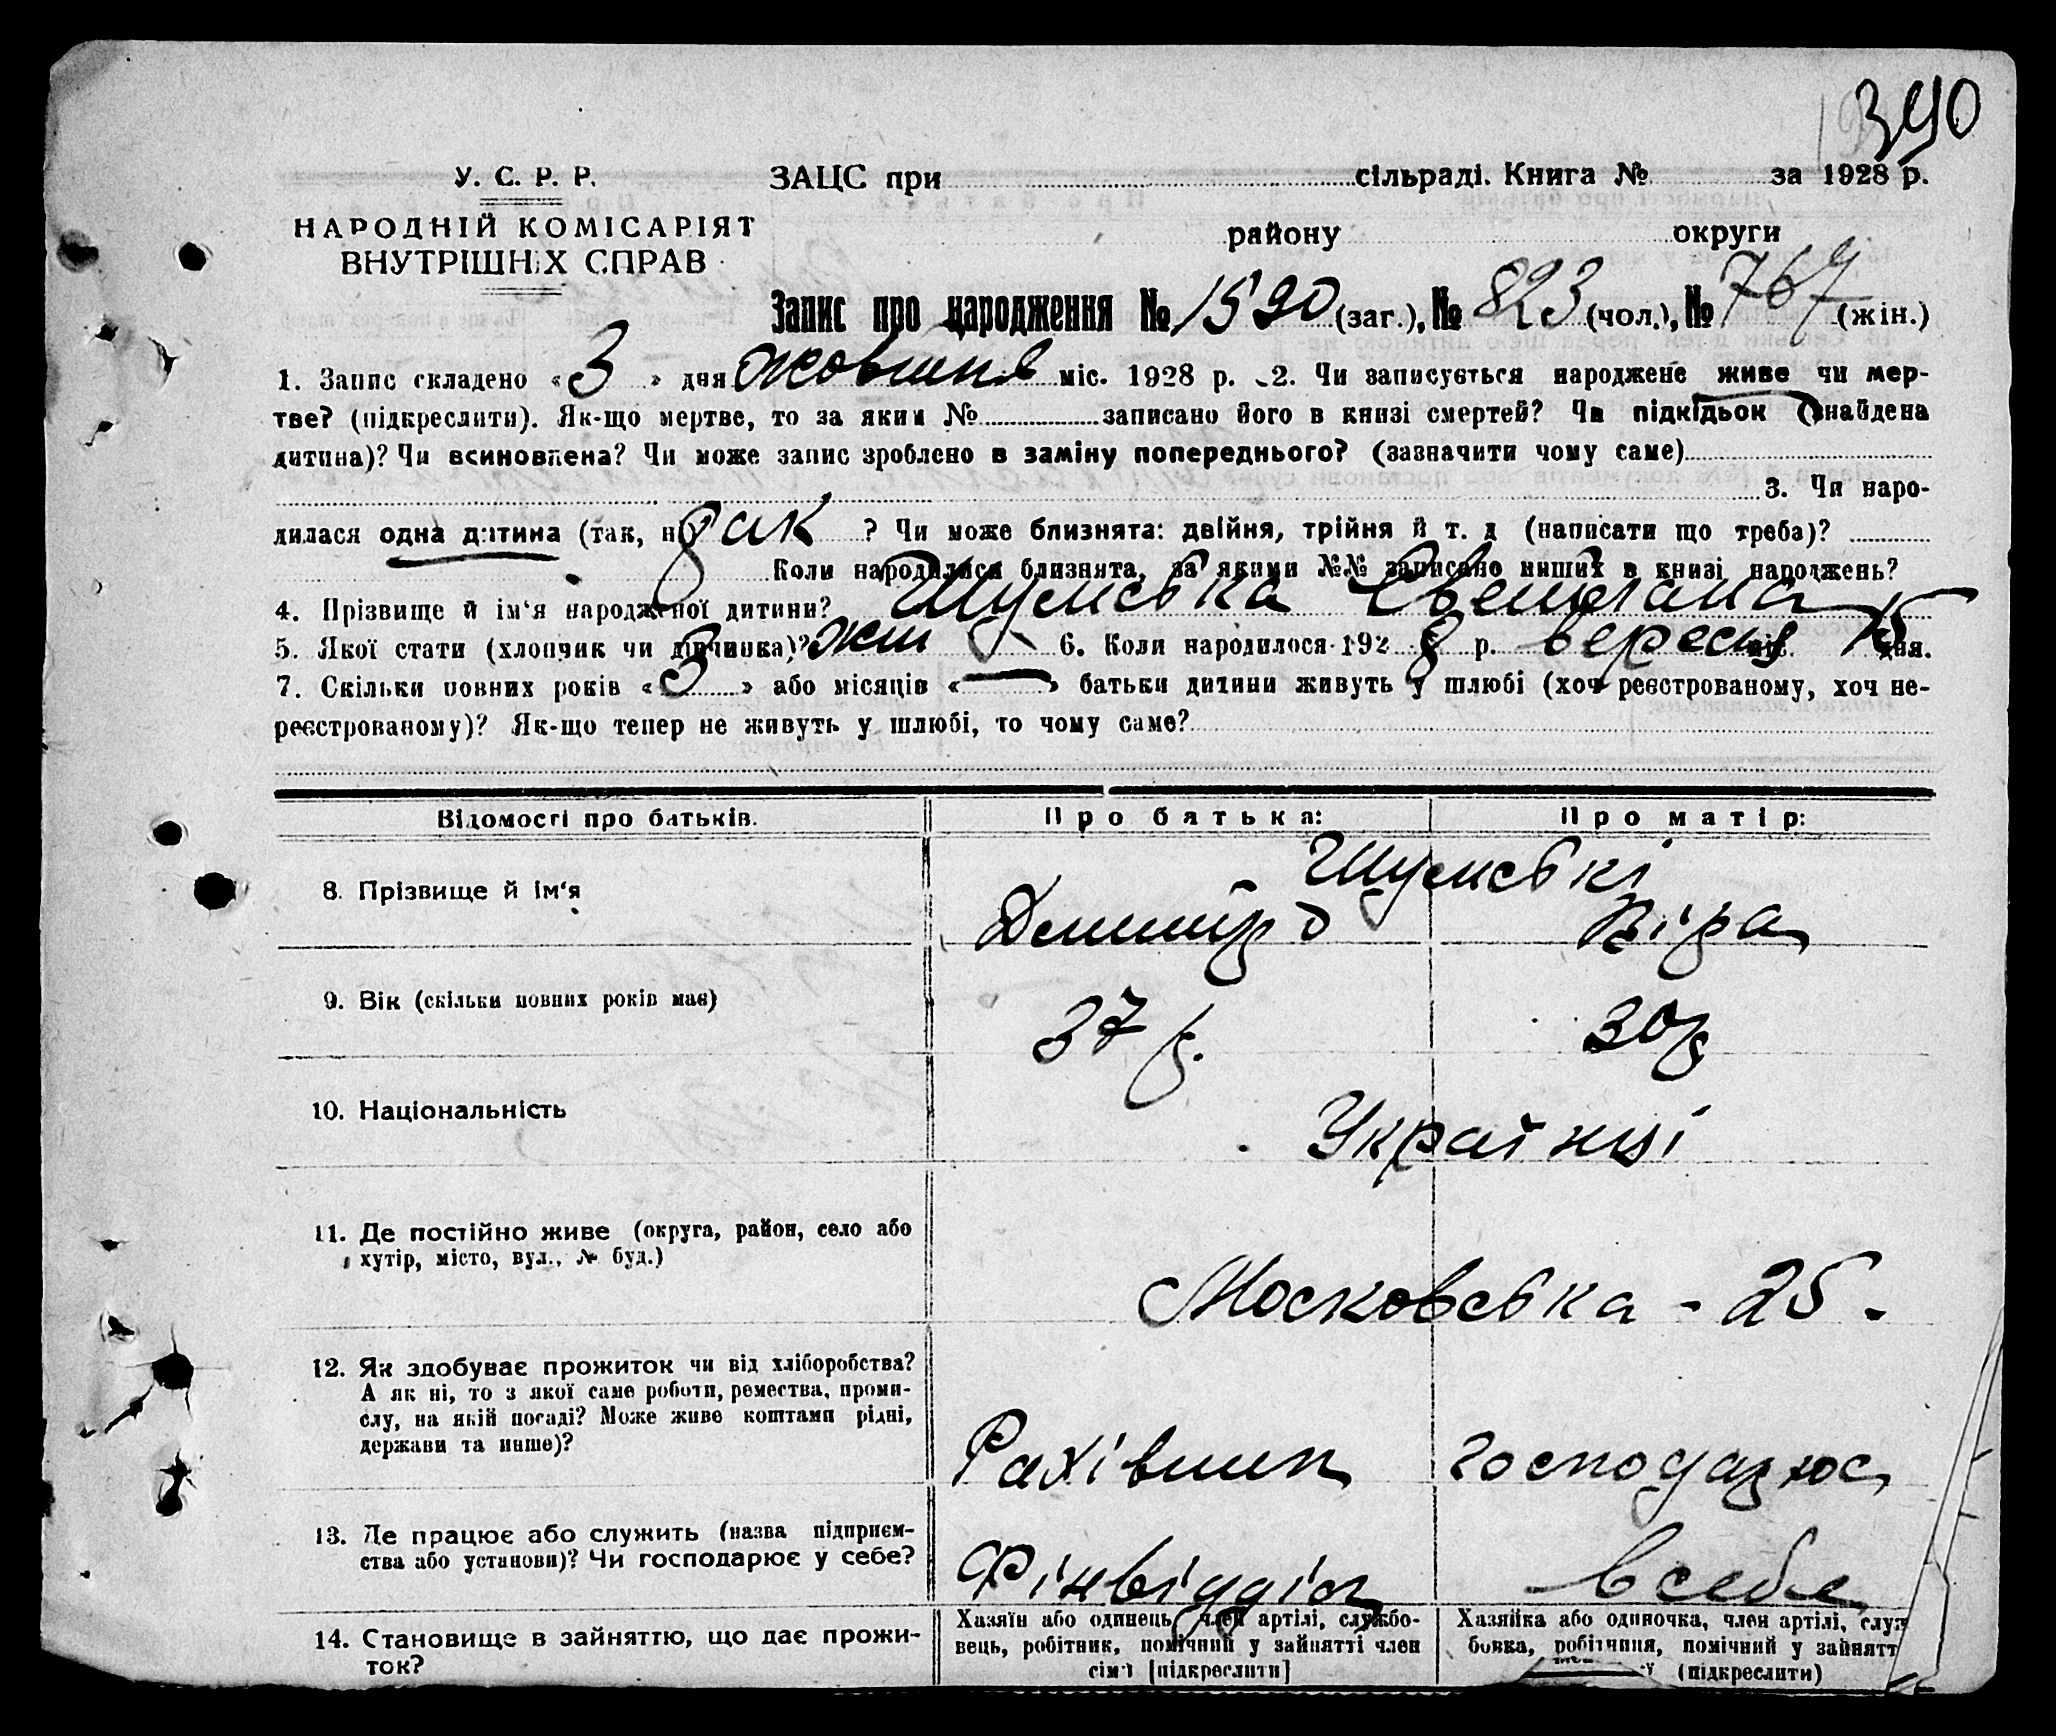 390
У. С. Р. Р.
ЗАЦС при сільраді. Книга № за 1928 р.
НАРОДНІЙ КОМІСАРІЯТ
ВНУТРІШНІХ СПРАВ
району округи
Запис про народження № 1590 (заг.), № 823 (чол.), № 767 (жін.)
1. Запис складено «3» дня жовтня міс. 1928 р. 2. Чи записується народжене живе чи мер-
тве? (підкреслити). Як-що мертве, то за яким № записано його в книзі смертей? Чи підкідьок (знайдена
дитина)? Чи всиновлена? Чи може запис зроблено в заміну попереднього? (зазначити чому саме)
3. Чи наро-
дилася одна дитина (так, ні) так ? Чи може близнята: двійня, трійня й т. д (написати що треба)?
Коли народилися близнята, за якими №№ записано инших в книзі народжень?
4. Прізвище й ім'я народженої дитини? Шумська Светлана
5. Якої стати (хлопчик чи дівчинка)? жін 6. Коли народилося 1928 р. вересня міс. 15 дня.
7. Скільки повних років «3» або місяців «—» батьки дитини живуть у шлюбі (хоч реєстрованому, хоч не-
реєстрованому)? Як-що тепер не живуть у шлюбі, то чому саме?
Відомості про батьків. Про батька: Про матір:
Шумські
8. Прізвище й ім'я Демитро Віра
9. Вік (скільки повних років має) 37 р. 30 р
10. Національність Українці
11. Де постійно живе (округа, район, село або
хутір, місто, вул., № буд.)
Московська - 25.
12. Як здобуває прожиток чи від хліборобства?
А як ні, то з якої саме роботи, ремества, проми-
слу, на якій посаді? Може живе коштами рідні,
держави та инше)?
Рахівник господарює
13. Де працює або служить (назва підприєм-
ства або установи)? Чи господарює у себе?
Фінвідділ в себе
14. Становище в зайняттю, що дає прожи-
ток?
Хазяїн або одинець, член артілі, службо-
вець, робітник, помічний у зайнятті член
сім'ї [підкреслити]
Хазяйка або одиночка, член артілі, служ
бовка, робітниця, помічний у зайнятт
(підкреслити)